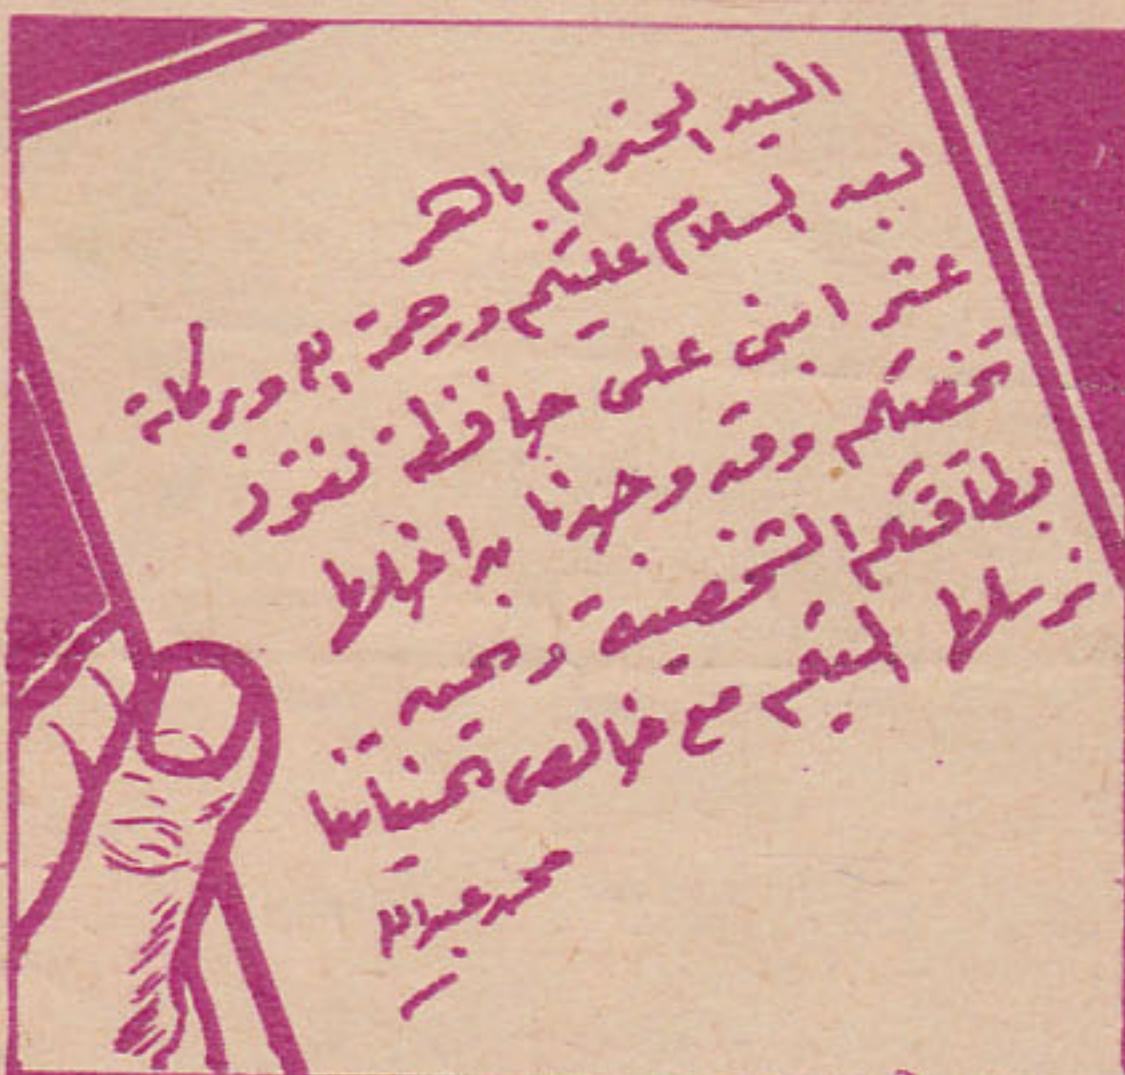 السيد المحترم باهر
بعد السلام عليكم ورحمة الله وبركاته
عثر ابنى على حافظة نقود
تخصكم وقد وجدنا بداخلها
بطاقتكم الشخصية ونحن
نرسلها اليكم مع خالص تحياتنا
محمد عبدالله